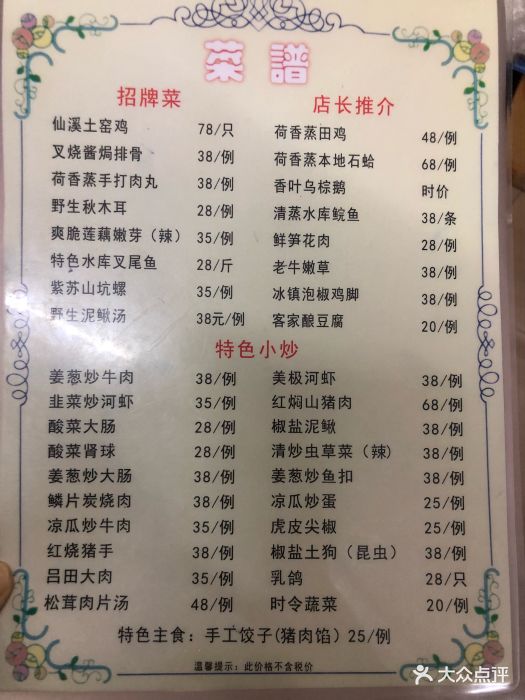 菜譜
招牌菜
仙溪土窑鸡 78/只
叉烧酱焗排骨 38/例
荷香蒸手打肉丸 38/例
野生秋木耳 28/例
爽脆莲藕嫩芽（辣） 35/例
特色水库叉尾鱼 28/斤
紫苏山坑螺 35/例
野生泥鳅汤 38元/例
店长推介
荷香蒸田鸡 48/例
荷香蒸本地石蛤 68/例
香叶乌棕鹅 时价
清蒸水库鲩鱼 38/条
鲜笋花肉 28/例
老牛嫩草 38/例
冰镇泡椒鸡脚 38/例
客家酿豆腐 20/例
特色小炒
姜葱炒牛肉 38/例
韭菜炒河虾 35/例
酸菜大肠 28/例
酸菜肾球 28/例
姜葱炒大肠 38/例
鳞片炭烧肉 38/例
凉瓜炒牛肉 35/例
红烧猪手 38/例
吕田大肉 35/例
松茸肉片汤 48/例
美极河虾 38/例
红焖山猪肉 68/例
椒盐泥鳅 38/例
清炒虫草菜（辣） 38/例
姜葱炒鱼扣 38/例
凉瓜炒蛋 25/例
虎皮尖椒 25/例
椒盐土狗（昆虫） 38/例
乳鸽 28/只
时令蔬菜 20/例
特色主食：手工饺子(猪肉馅）25/例
温馨提示：此价格不含税价
大众点评